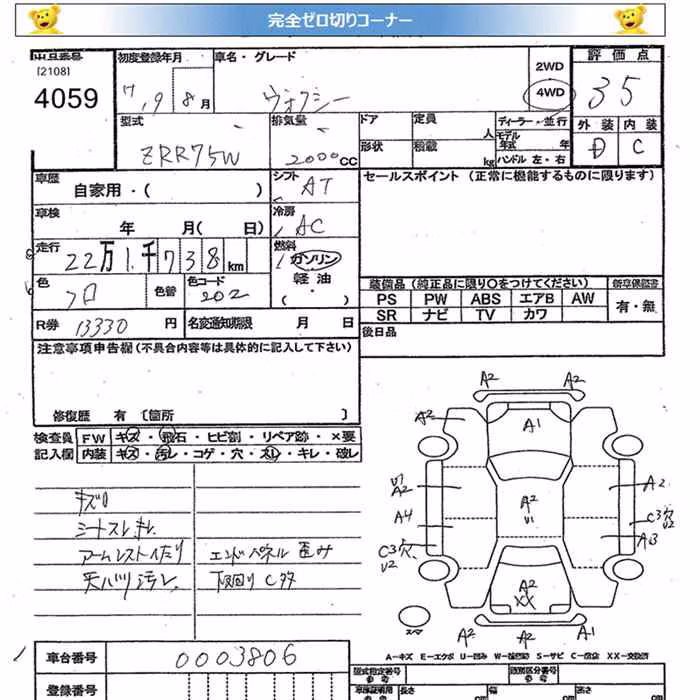 完全ゼロ切りコーナー
出品番号
(2108)
4059
初度登録年月
19 8月
車名・グレード
ヴォクシー
2WD
4WD
評価点
35
外装 内装
D C
型式
ZRR75W
排気量
2000cc
ドア
形状
定員
人
積載
kg
ディーラー・並行
モデル
年式 年
ハンドル 左・右
車歴
自家用・( )
シフト
AT
セールスポイント (正常に機能するものに限ります)
車検
年 月( 日)
冷房
AC
走行
22万1千738km
燃料
ガソリン
軽油
・( )
色
クロ
色替
色コード
202
装備品 (純正品に限り○をつけてください)
PS PW ABS エアB AW
SR ナビ TV カワ
新車保証書
有・無
R券 13330円
名変通知期限 月 日
後日品
注意事項申告欄 (不具合内容等は具体的に記入して下さい)
修復歴 有 [箇所 ]
検査員
記入欄
FW キズ・飛石・ヒビ割・リペア跡・×要
内装 キズ・汚レ・コゲ・穴・スレ・キレ・破レ
キズ□
シートスレ キレ
アームレストヘタリ
天バリ汚レ
エンドパネル 歪み
下回り C多
A2 A2
A2
A1
U1
A2
A2
A2
U1
A4
C3穴
U2
C3穴
U2
A3
A2
XX
スペア
A2 A2 A1
A-キズ E-エクボ U-凹み W-補修跡 S-サビ C-腐食 XX-交換済
車台番号
0003806
登録番号
型式指定番号
参考
類別区分番号
参考
車検証明用
参考
長さ cm
幅 cm
高さ cm